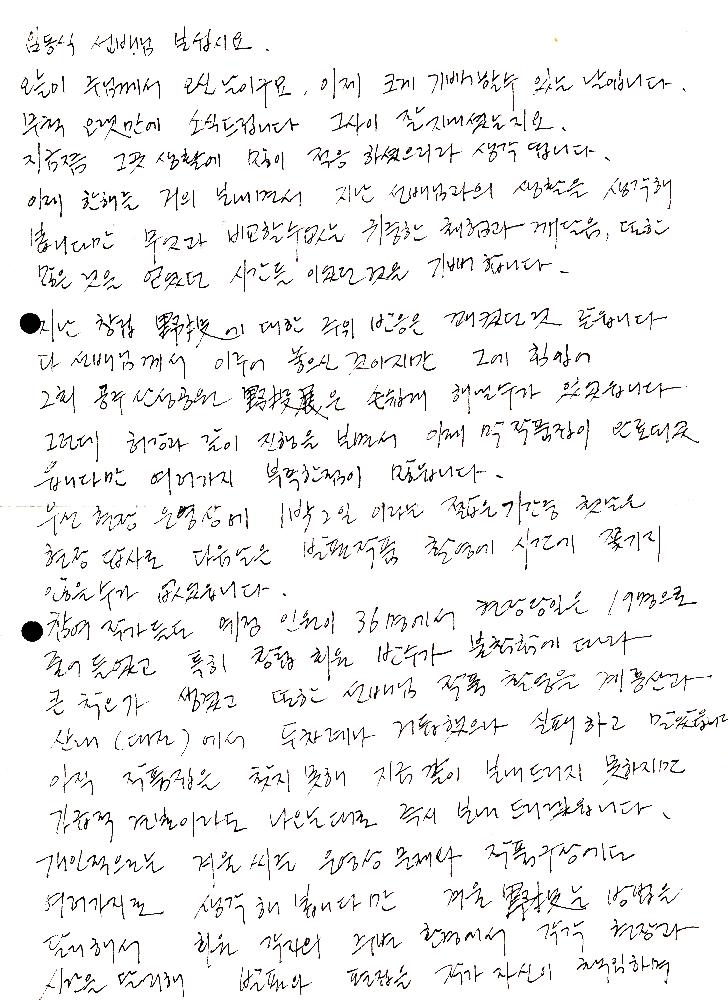 임동식 선배님 보십시요.
오늘이 주님께서 오신 날이구요, 이제 크게 기뻐할수 있는 날입니다.
무척 오랫만에 소식드립니다 그사이 잘지내셨는지요.
지금쯤 그곳 생활에 많이 적응 하셨으리라 생각 됩니다.
이제 한해를 거의 보내면서 지난 선배님과의 생활을 생각해
봅니다만 무엇과 비교할수없는 귀중한 체험과 깨달음, 또한
많은 것을 얻었던 시간들 이었던것을 기뻐 합니다.
지난 창립 野投에 대한 주위 반응은 꽤 컸던것 같습니다
다 선배님께서 이루어 놓으신 것이지만 그에 힘입어
2회 공주 산성공원 野投展은 손쉽게 해낼수가 있었습니다
그런데 허강과 같이 진행을 보면서 이제 막 작품집이 완료되었
습니다만 여러가지 부족한점이 많습니다.
우선 현장 운영상에 1박2일 이라는 짧은기간중 첫날은
현장 답사로 다음날은 발표작품 촬영에 시간에 쫓기지
않을수가 없었습니다.
참여 작가들도 예정 인원이 36명에서 현장당일은 19명으로
줄어 들었고 특히 창립 회원 반수가 불참함에 따라
큰 차질가 생겼고 또한 선배님 작품 촬영은 계룡산과
산내 (대전)에서 두차례나 거듭했으나 실패하고 말았습니다
아직 작품집은 찾지 못해 지금 같이 보내드리지 못하지만
가급적 견본이라도 나오는대로 즉시 보내 드리겠습니다.
개인적으로는 겨울 씨즌 운영상 문제와 작품구상에도
여러가지로 생각해 봅니다만 겨울 野投는 방법을
달리해서 회원 각자의 주변 환경에서 각각 현장과
시간을 달리해 발표와 표현을 작가 자신이 책임하며